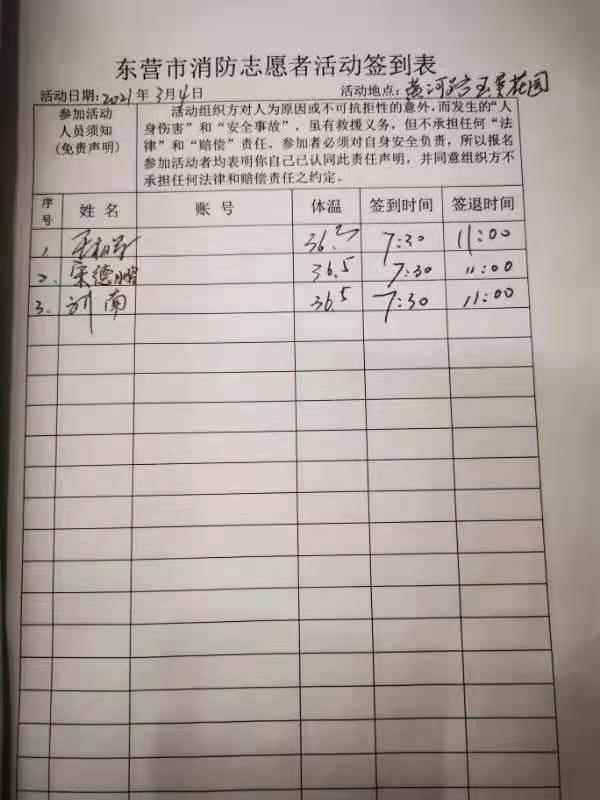 东营市消防志愿者活动签到表
活动日期:2021年3月4日 活动地点:黄河路玉景花园
参加活动
人员须知
(免责声明)
活动组织方对人为原因或不可抗拒性的意外,而发生的“人
身伤害”和“安全事故”,虽有救援义务,但不承担任何“法
律”和“赔偿”责任。参加者必须对自身安全负责,所以报名
参加活动者均表明你自己已认同此责任声明,并同意组织方不
承担任何法律和赔偿责任之约定。
序号 姓名 账号 体温 签到时间 签退时间
1. 36.5 7:30 11:00
2. 宋德鹏 36.5 7:30 11:00
3. 刘南 36.5 7:30 11:00